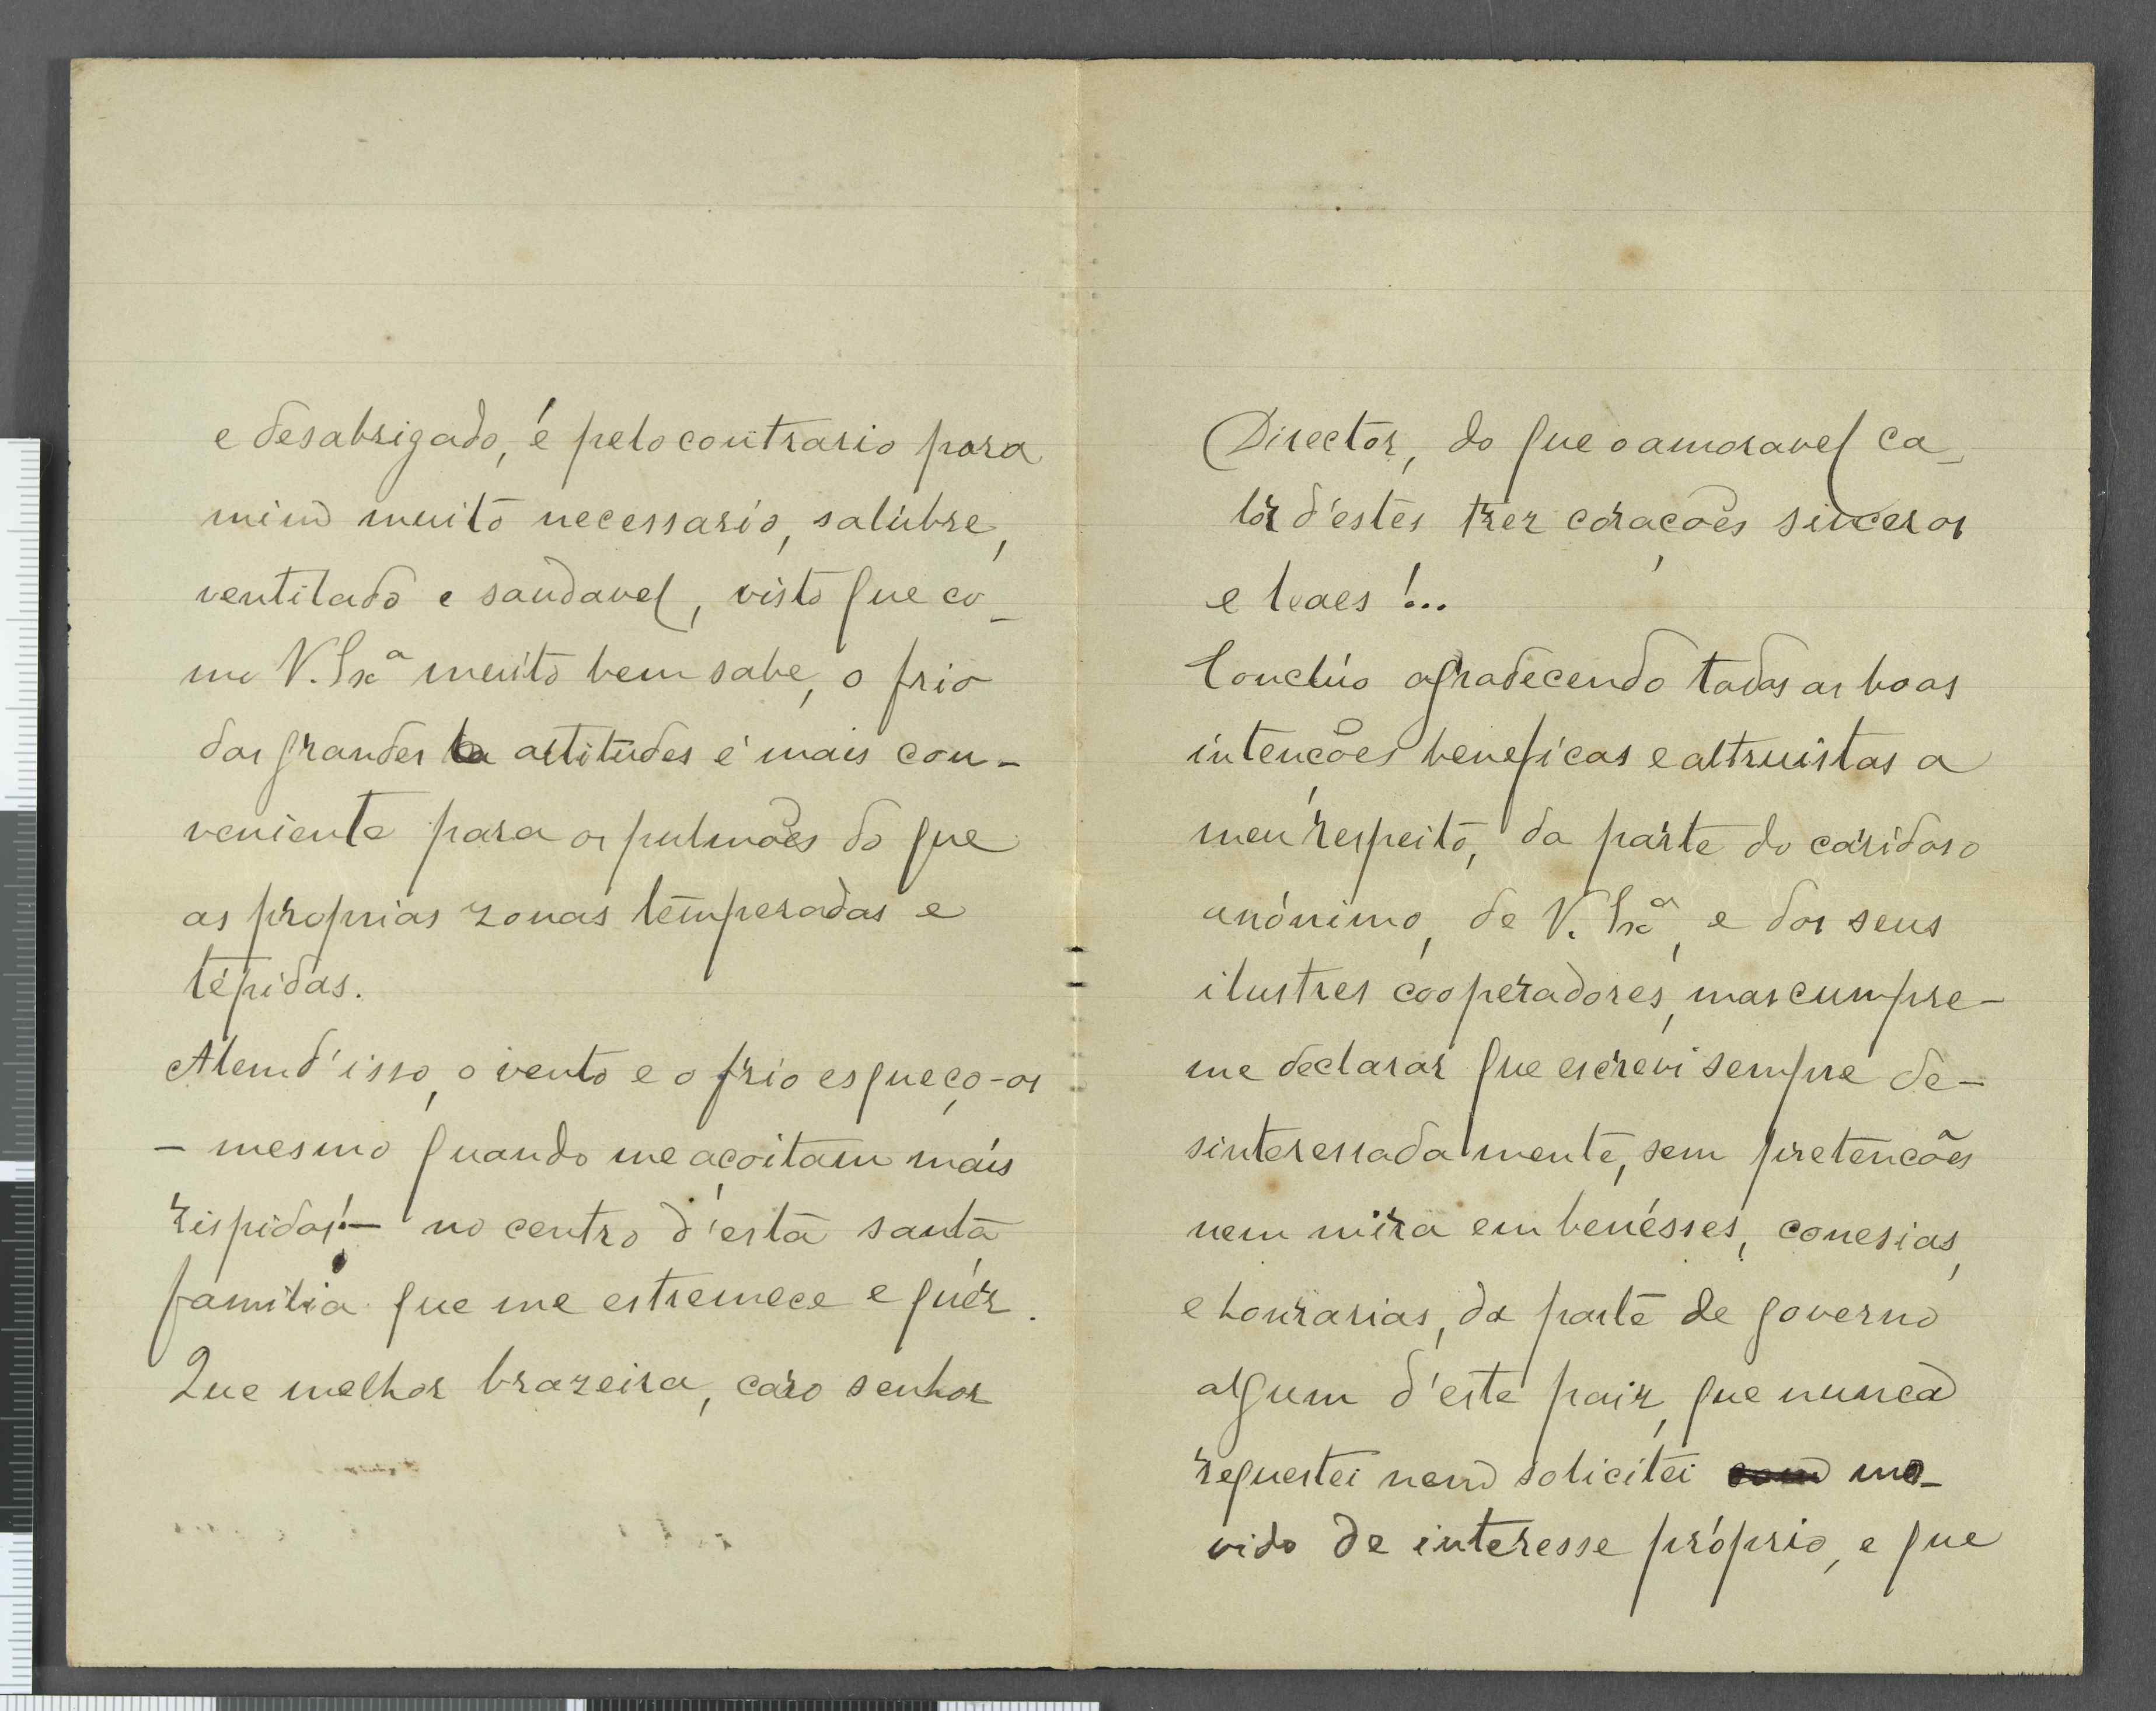 e desabrigado, é pelo contrario para
mim muito necessario, salúbre,
ventilado e saudavel, visto que co-
mo V. Exª muito bem sabe, o frio
das grandes altitudes é mais con-
veniente para os pulmões do que
as proprias zonas temperadas e
tépidas.
Alem d'isso, o vento e o frio esqueço-os
- mesmo quando me açoitam mais
rispidos! - no centro d'esta santa
familia que me estremece e quér.
Que melhor brazeira, caro senhor
Director, do que o amoravel ca-
lôr d'estes trez corações sinceros
e leaes!...
Conclúo agradecendo todas as boas
intenções beneficas e altruistas a
meu respeito, da parte do caridoso
anónimo, de V. Exª, e dos seus
ilustres cooperadores, mas cumpre-
me declarar que escrevi sempre de-
sinteressadamente, sem pretenções
nem mira em benésses, conesias,
e honrarias, da parte de governo
algum d'este paiz, que nunca
requestei nem solicitei mo-
vido de interesse próprio, e que